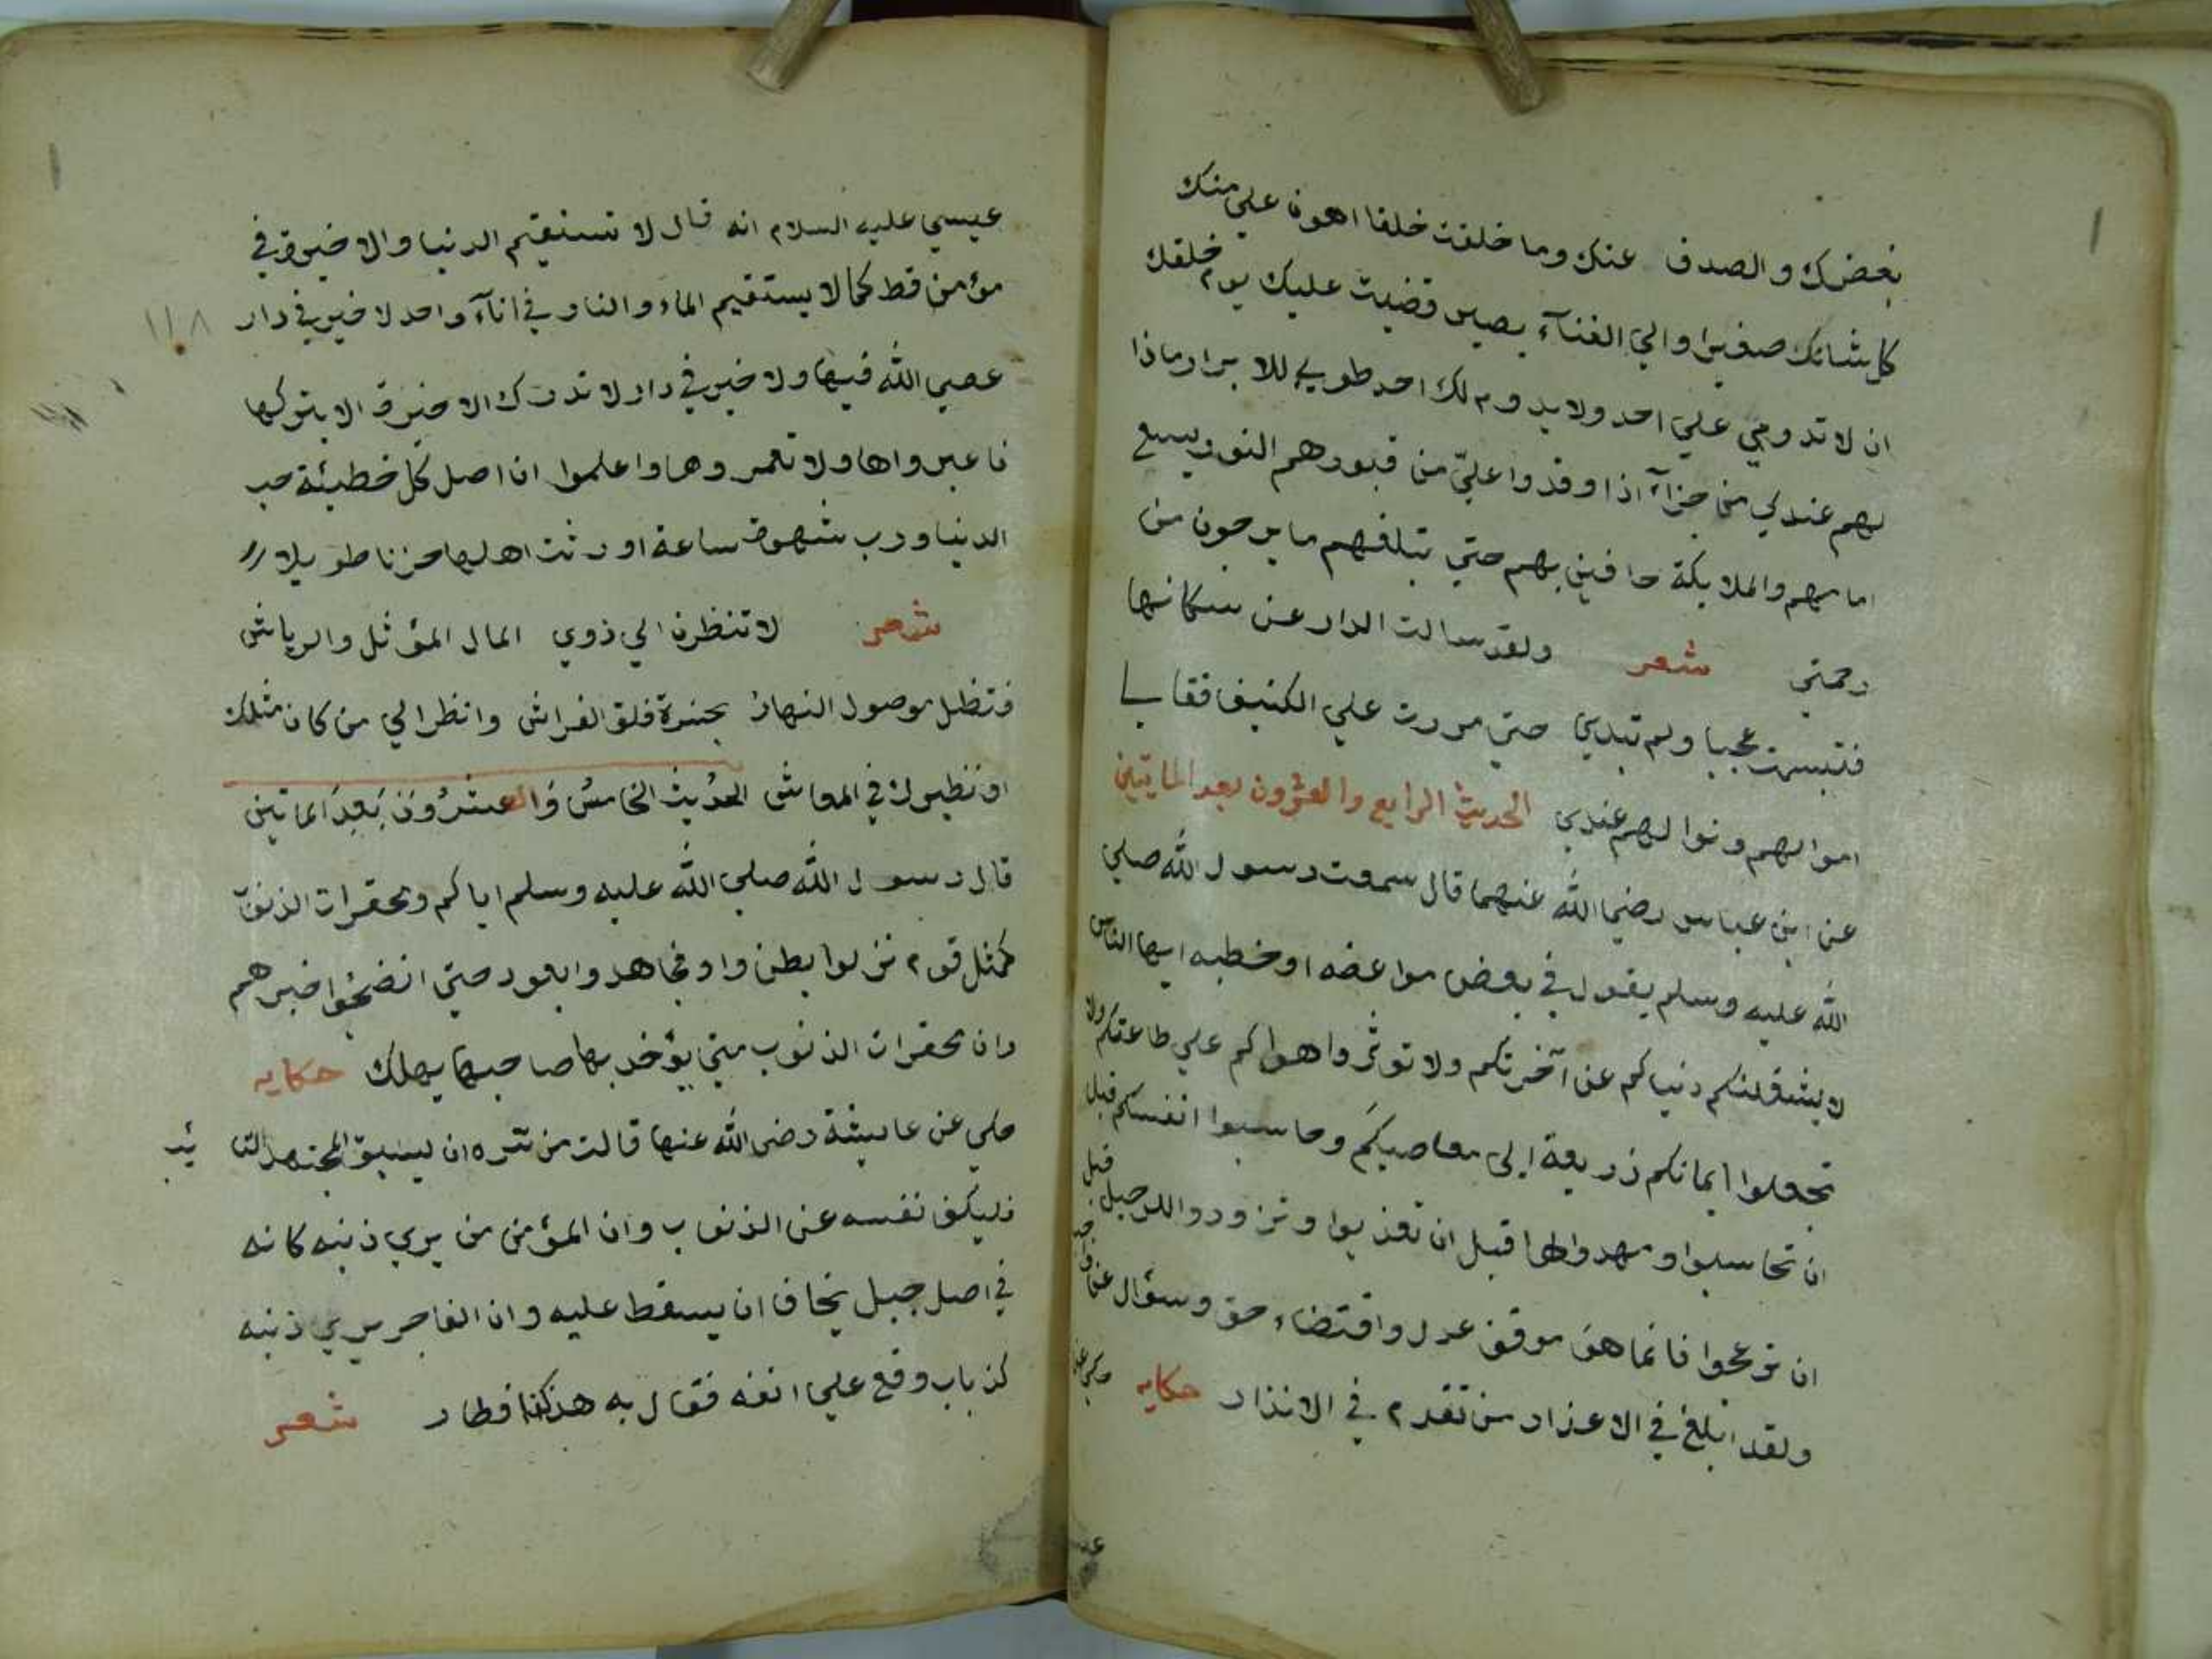 بغضك والصدف عنك وما خلقت خلقا اهون علي منك
كل شانك صغيرا والي الفنآء يصير قضيت عليك يوم خلقك
ان لا تدومي علي احد ولا يدوم لك احد طوبي للابرار ماذا
لهم عندي من جزآء اذا وفدوا عليّ من قبورهم النور يسع
امامهم والملايكة حافين بهم حتي تبلغهم ما يرجون من
رحمتي شعر ولقد سالت الدار عن سكانها
فتبسمت عجبا ولم تبدي حتي مررت علي الكنيف فقال
اموالهم ونوالهم عندي الحديث الرابع والعشرون بعد المايتين
عن ابن عباس رضي الله عنهما قال سمعت رسول الله صلي
الله عليه وسلم يقول في بعض مواعضه او خطبه ايها الناس
لا يشغلنكم دنياكم عن آخرتكم ولا توثروا هواكم علي طاعتكم ولا
تجعلوا ايمانكم ذريعة الي معاصيكم وحاسبوا انفسكم قبل
ان تحاسبوا ومهدوا لها قبل ان تعذبوا وتزودوا للرحيل قبل
ان تزعجوا فانما هو موقف عدل واقتضاء حق وسؤال عن
ولقد ابلغ في الاعذار من تقدم في الانذار حكايه
عيسي عليه السلام انه قال لا تستقيم الدنيا والاخرة في
مؤمن قط كما لا يستقيم الماء والنار في انآء واحد لا خير في دار
عصي الله فيها ولا خير في دار لا تدرك الاخرة الا بتركها
فاعبرواها ولا تعمروها واعلموا ان اصل كل خطيئة حب
الدنيا ورب شهوة ساعة اورثت اهلها حزنا طويلا
شعر لا تنظرن الي ذوي المال المؤثل والرياش
فتظل موصول النهار بحسرة قلق الفراش وانظر الي من كان مثلك
او نظيرك في المعاش الحديث الخامس والعشرون بعد الماتين
قال رسول الله صلي الله عليه وسلم اياكم ومحقرات الذنوب
كمثل قوم نزلوا بطن واد فجاهدوا بعود حتي انضجوا خبزهم
وان محقرات الذنوب متي يؤخذ بها صاحبها يهلك حكايه
حكي عن عايشة رضي الله عنها قالت من سره ان يسبق المجتهد التا يب
فليكف نفسه عن الذنوب وان المؤمن من يري ذنبه كانه
في اصل جبل يخاف ان يسقط عليه وان الفاجر يري ذنبه
كذباب وقع علي انفه فقال به هكذا فطار شعر
١١٨